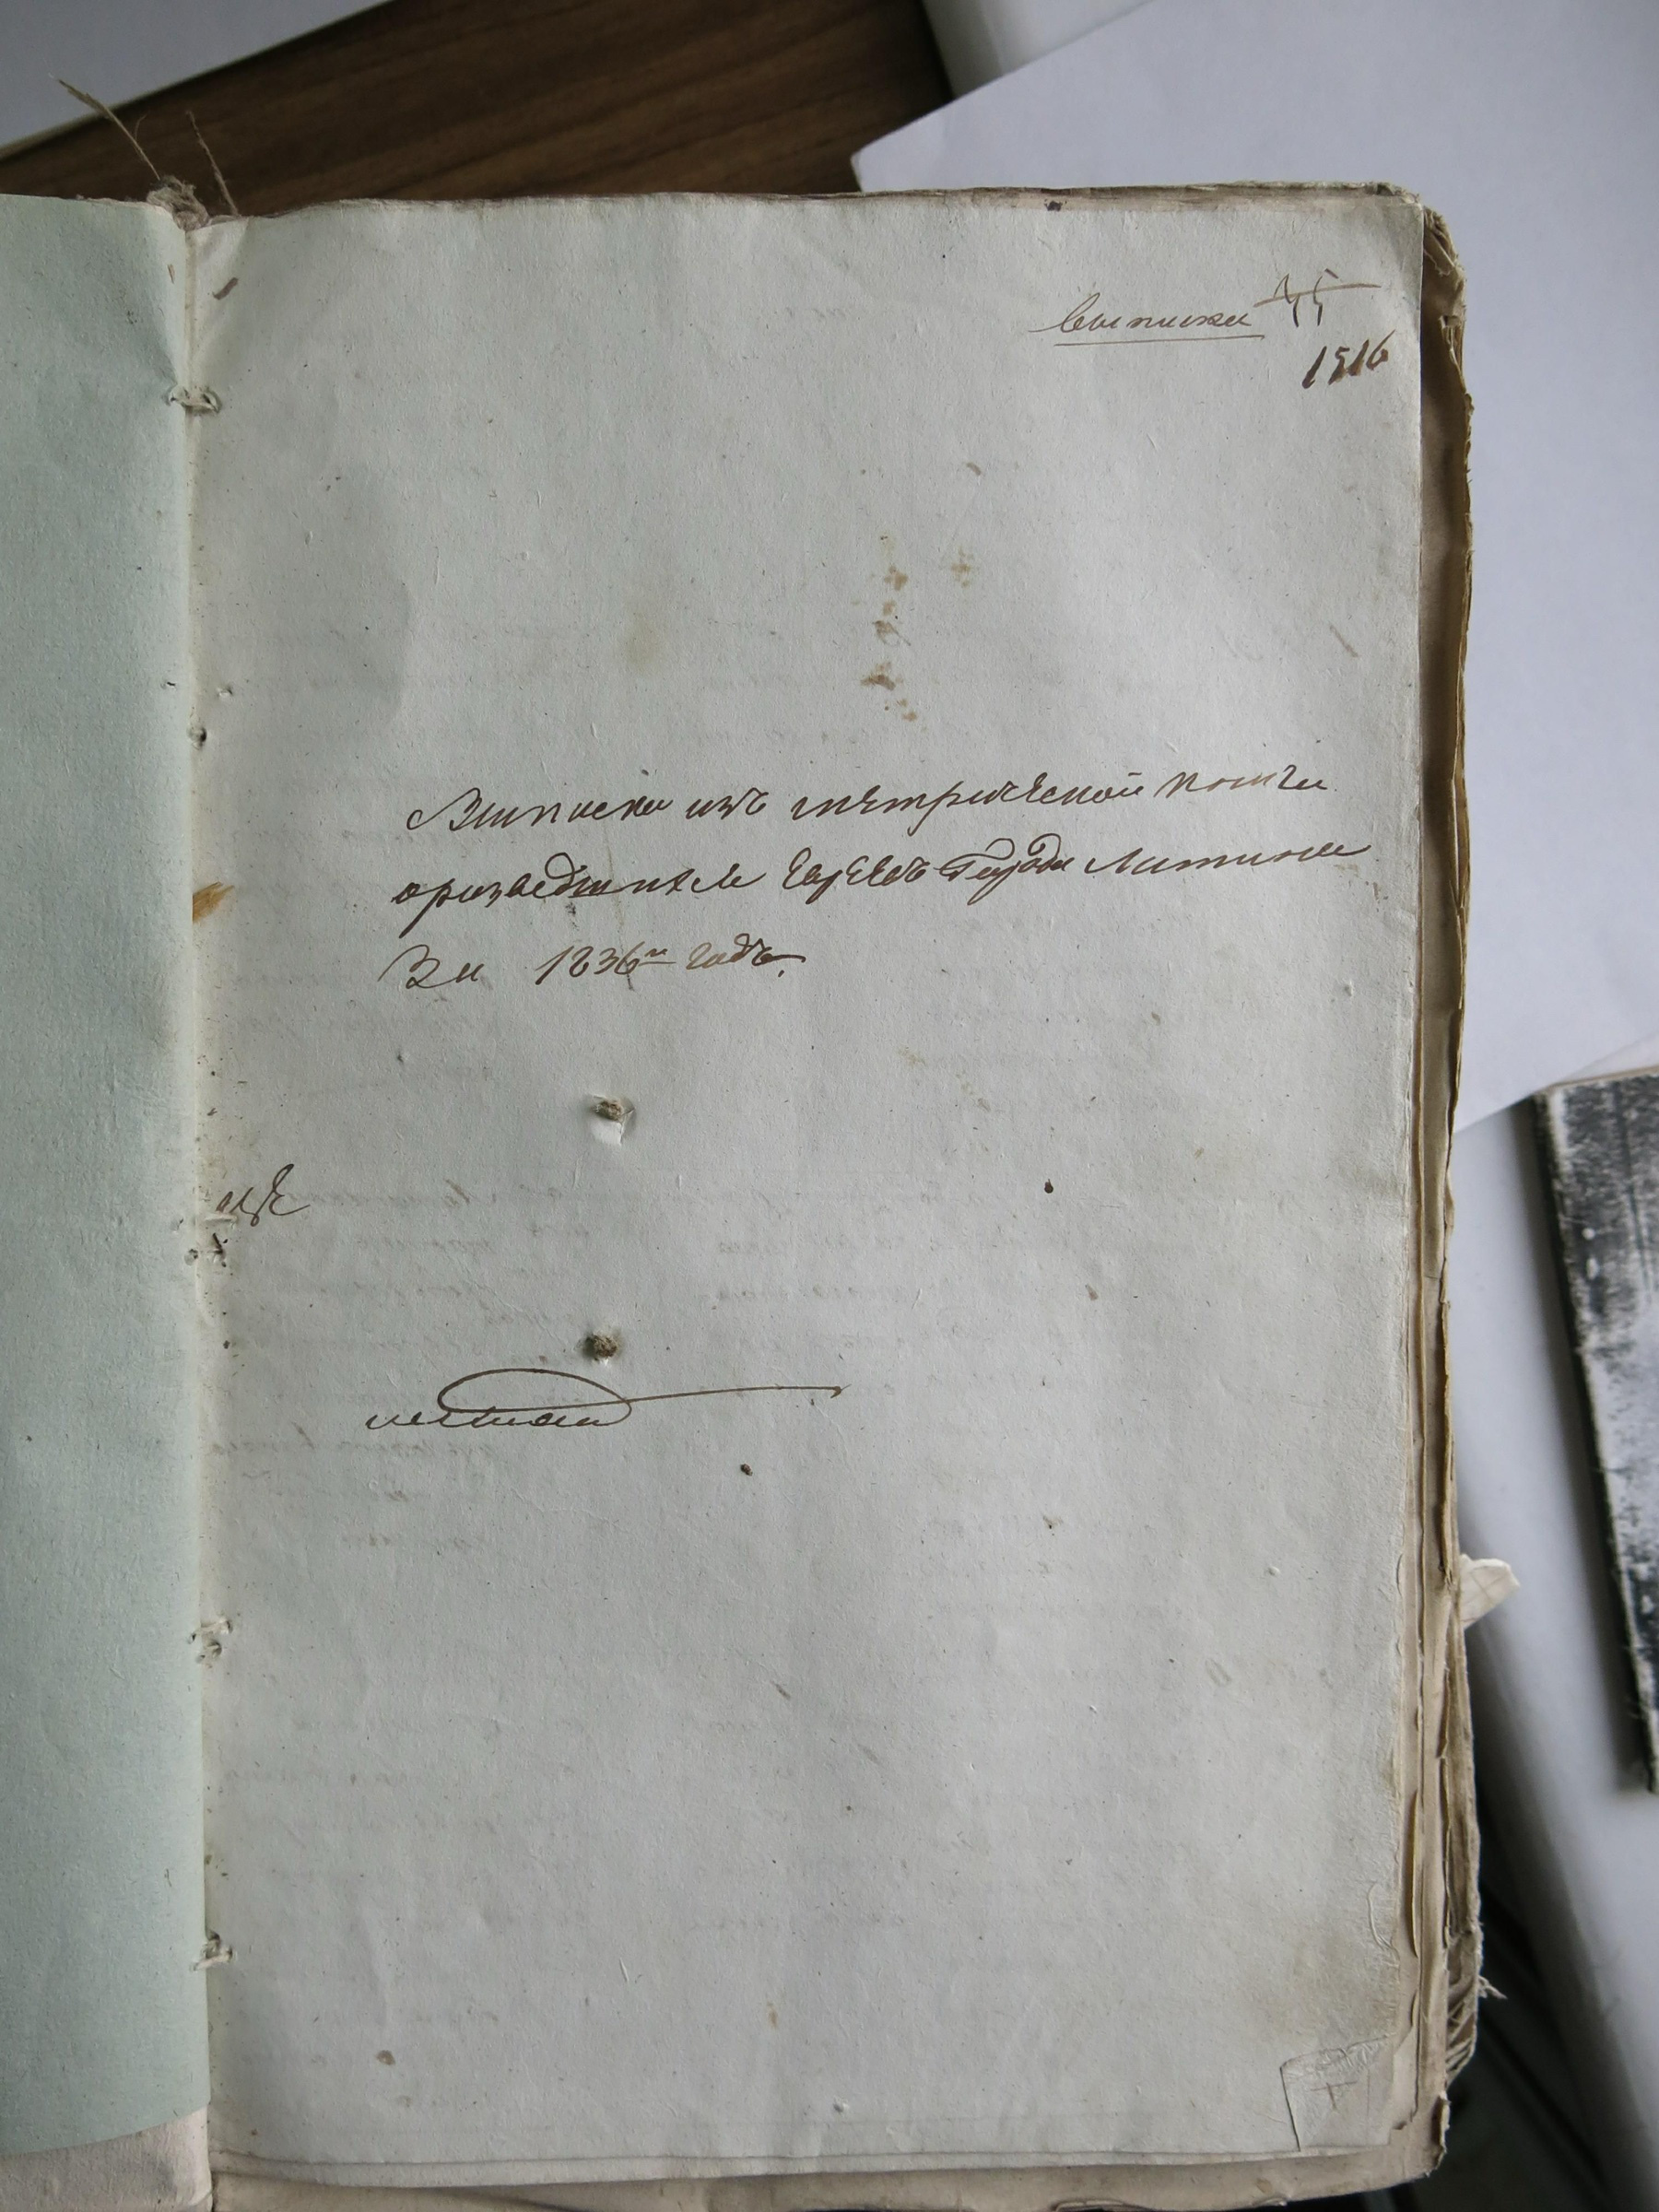 выписка 45
1516
Выписка изъ метрической книги
о разведшихся Евреевъ Города Литина
За 1836й годъ.